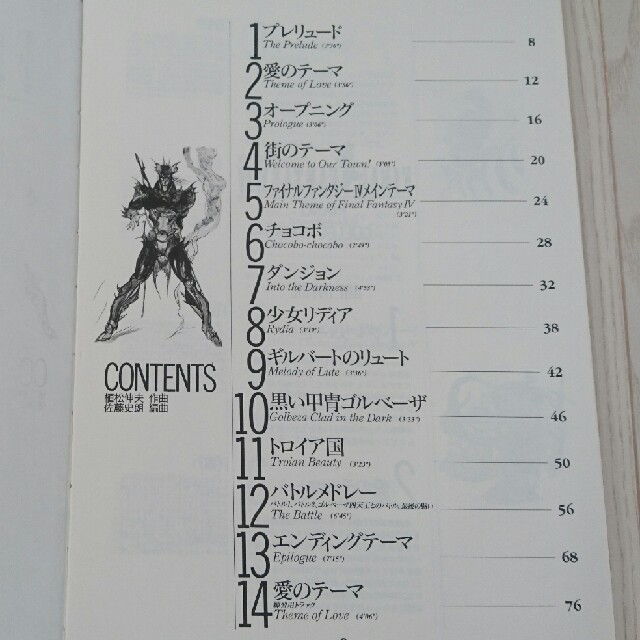 1 プレリュード
The Prelude 8
2 愛のテーマ
Theme of Love 12
3 オープニング
Prologue 16
4 街のテーマ
Welcome to Our Town! 20
5 ファイナルファンタジーIVメインテーマ
Main Theme of Final Fantasy IV 24
6 チョコボ
Chocobo-chocobo 28
7 ダンジョン
Into the Darkness 32
8 少女リディア
Rydia 38
9 ギルバートのリュート
Melody of Lute 42
10 黒い甲冑ゴルベーザ
Golbeza Clad in the Dark (3'23") 46
11 トロイア国
Troian Beauty (3'23") 50
12 バトルメドレー
The Battle (6'45") 56
13 エンディングテーマ
Epilogue 68
14 愛のテーマ
練習用トラック
Theme of Love (4'06") 76
CONTENTS
植松伸夫 作曲
佐藤史朗 編曲